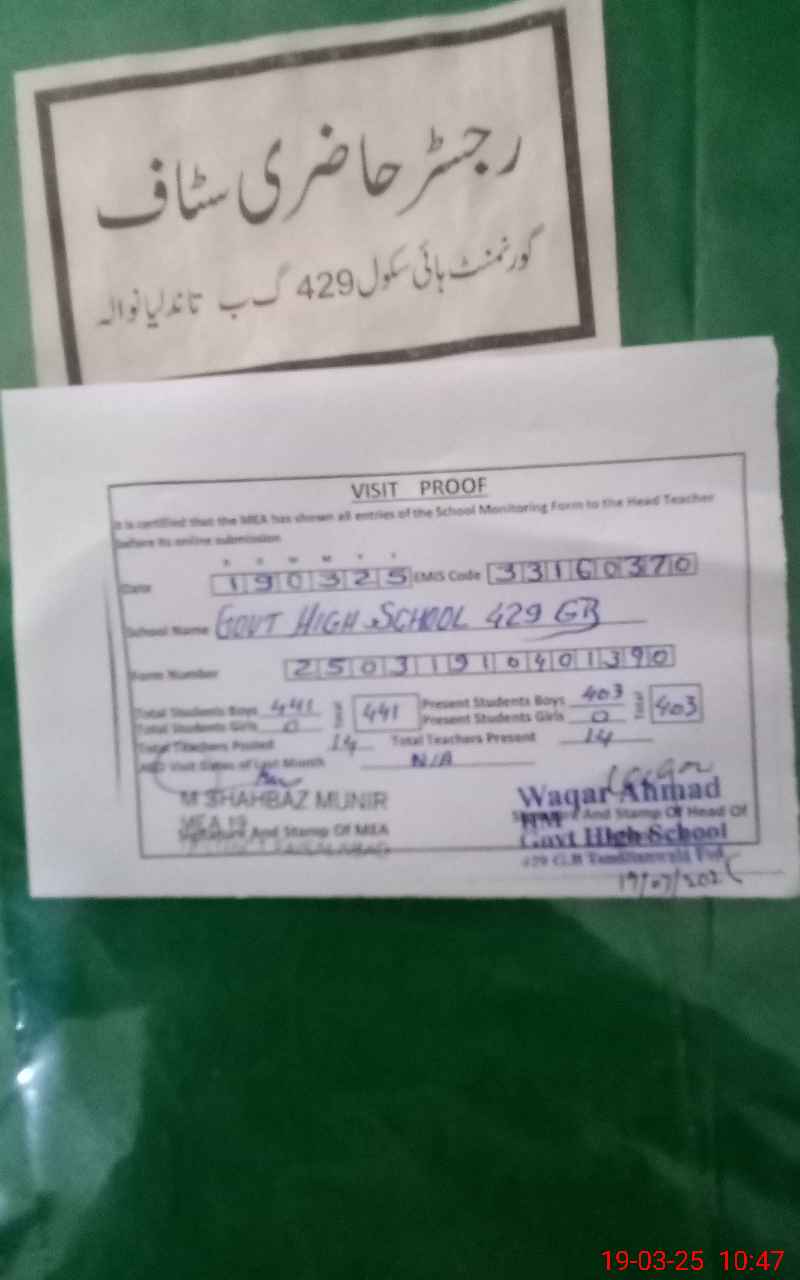 رجسٹر حاضری سٹاف
گورنمنٹ ہائی سکول 429 گ ب تاندلیانوالہ
VISIT PROOF
It is certified that the MEA has shown all entries of the School Monitoring Form to the Head Teacher
before its online submission
Date 190325 EMIS Code 33160370
School Name GOVT HIGH SCHOOL 429 GB
Form Number 25031910401390
Total Students Boys 441 Total 441 Present Students Boys 403 Total 403
Total Students Girls 0 Present Students Girls 0
Total Teachers Posted 14 Total Teachers Present 14
AEO Visit Dates of Last Month N/A
M SHAHBAZ MUNIR
MEA 19
Signature And Stamp Of MEA
Waqar Ahmad
Signature And Stamp Of Head Of
HM
Govt High School
429 G.B Tandlianwala
19-03-25 10:47